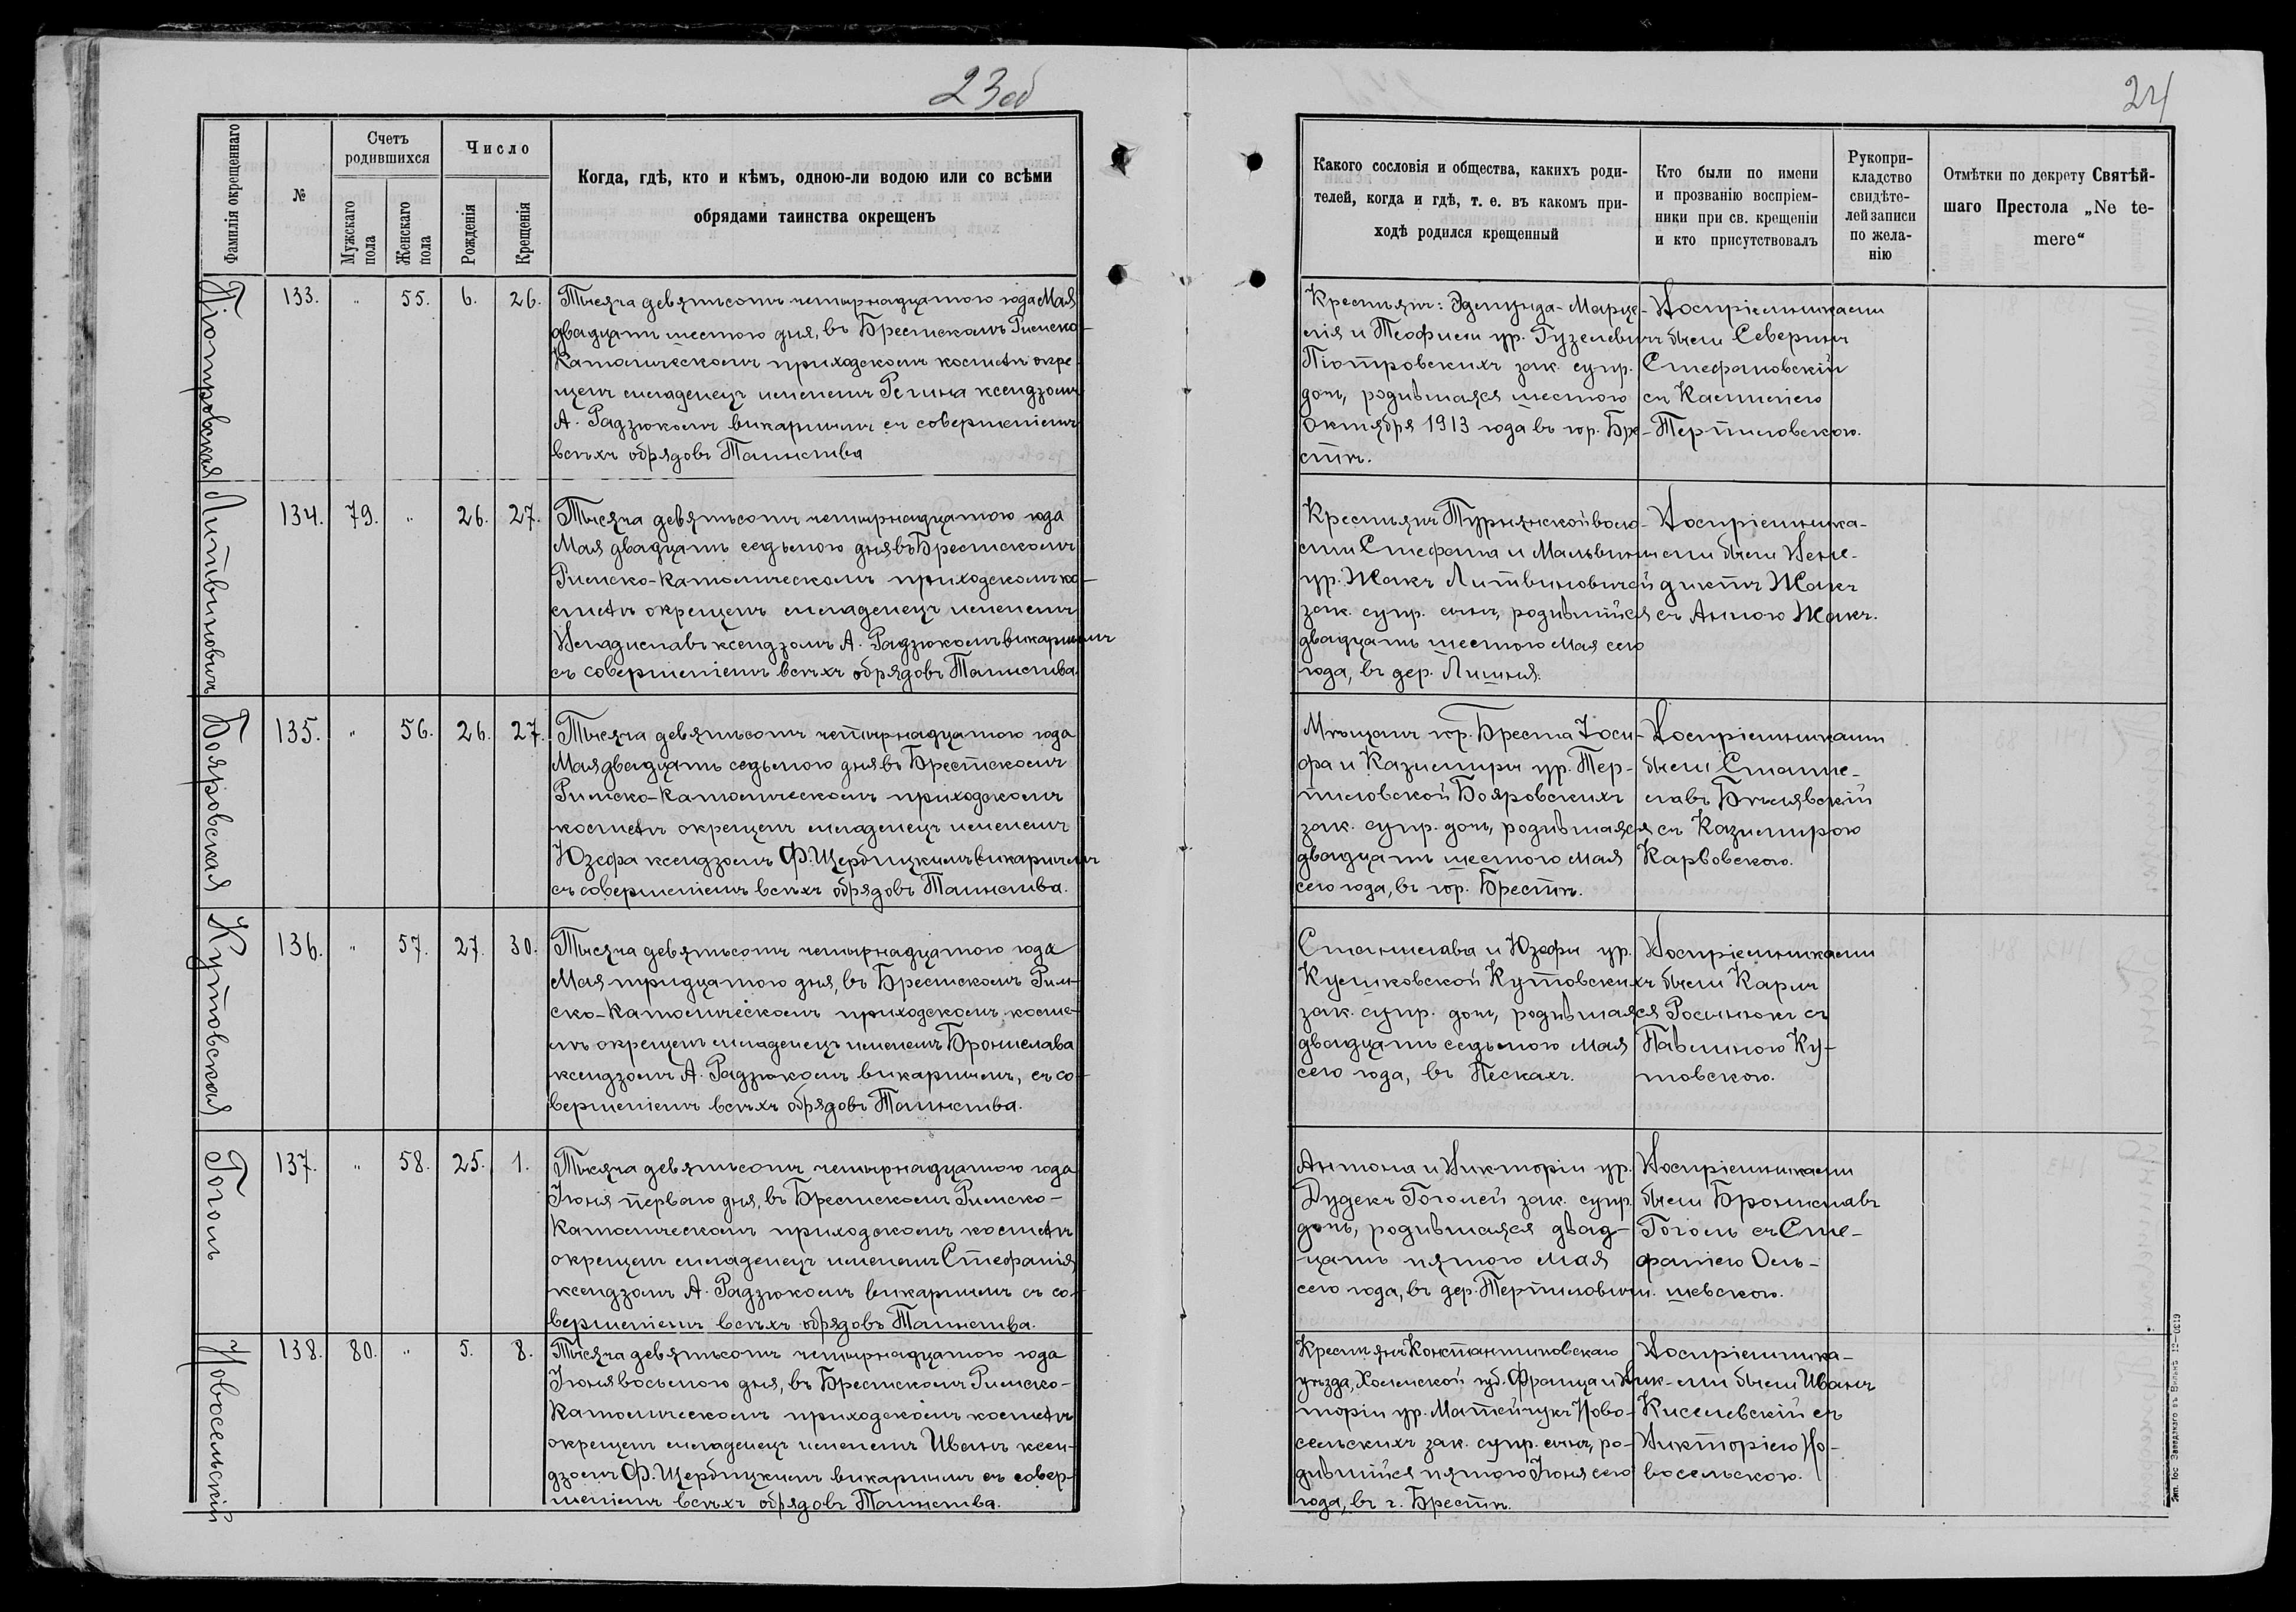 23 об
Фамилія окрещеннаго
№
Счетъ родившихся
Мужскаго пола
Женскаго пола
Число
Рожденія
Крещенія
Когда, гдѣ, кто и кѣмъ, одною-ли водою или со всѣми
обрядами таинства окрещенъ
Піотровская
133. " 55. 6. 26.
Тысяча девятьсотъ четырнадцатого года Мая
двадцать шестого дня, въ Брестскомъ Римско-
Католическомъ приходскомъ костелѣ окре-
щенъ младенецъ именемъ Регина ксендзомъ
А. Радзюкомъ викаріемъ съ совершеніемъ
всѣхъ обрядовъ Таинства
Литвиновичъ
134. 79. " 26. 27.
Тысяча девятьсотъ четырнадцатого года
Мая двадцать седьмого дня въ Брестскомъ
Римско-Католическомъ приходскомъ ко-
стелѣ окрещенъ младенецъ именемъ
Владиславъ ксендзомъ А. Радзюкомъ викаріемъ
съ совершеніемъ всѣхъ обрядовъ Таинства.
Бояровская
135. " 56. 26. 27.
Тысяча девятьсотъ четырнадцатого года
Мая двадцать седьмого дня въ Брестскомъ
Римско-Католическомъ приходскомъ
костелѣ окрещенъ младенецъ именемъ
Юзефа ксендзомъ Ф. Щербицкимъ викаріемъ
съ совершеніемъ всѣхъ обрядовъ Таинства.
Кутовская
136. " 57. 27. 30.
Тысяча девятьсотъ четырнадцатого года
Мая тридцатого дня, въ Брестскомъ Рим-
ско-Католическомъ приходскомъ косте-
лѣ окрещенъ младенецъ именемъ Бронислава
ксендзомъ А. Радзюкомъ викаріемъ, съ со-
вершеніемъ всѣхъ обрядовъ Таинства.
Гоголь
137. " 58. 25. 1.
Тысяча девятьсотъ четырнадцатого года
Іюня перваго дня, въ Брестскомъ Римско-
Католическомъ приходскомъ костелѣ
окрещенъ младенецъ именемъ Стефанія,
ксендзомъ А. Радзюкомъ викаріемъ съ со-
вершеніемъ всѣхъ обрядовъ Таинства.
Новосельскій
138. 80. " 5. 8.
Тысяча девятьсотъ четырнадцатого года
Іюня восьмого дня, въ Брестскомъ Римско-
Католическомъ приходскомъ костелѣ
окрещенъ младенецъ именемъ Иванъ ксен-
дзомъ Ф. Щербицкимъ викаріемъ съ совер-
шеніемъ всѣхъ обрядовъ Таинства.
24
Какого сословія и общества, какихъ роди-
телей, когда и гдѣ, т. е. въ какомъ при-
ходѣ родился крещенный
Кто были по имени
и прозванію воспріем-
ники при св. крещеніи
и кто присутствовалъ
Рукопри-
кладство
свидѣте-
лей записи
по жела-
нію
Отмѣтки по декрету Святѣй-
шаго Престола „Ne te-
mere“
Крестьянъ: Эдмунда-Марце-
лія и Теофили ур. Гузелевичъ
Піотровскихъ зак. супр.
дочь, родившаяся шестого
Октября 1913 года въ гор. Бре-
стѣ.
Воспріемниками
были Северинъ
Стефановскій
съ Камиліею
Терпиловскою.
Крестьянъ Турнянской воло-
сти Стефана и Мальвины
ур. Жакъ Литвиновичей
зак. супр. сынъ, родившійся
двадцать шестого Мая сего
года, въ дер. Лишня.
Воспріемника-
ми были Вене-
диктъ Жакъ
съ Анною Жакъ.
Мѣщанъ гор. Бреста Іоси-
фа и Казимиры ур. Тер-
пиловской Бояровскихъ
зак. супр. дочь, родившаяся
двадцать шестого Мая
сего года, въ гор. Брестѣ.
Воспріемниками
были Стани-
славъ Бѣлявскій
съ Казимирою
Карвовскою.
Станислава и Юзефы ур.
Куликовской Кутовскихъ
зак. супр. дочь, родившаяся
двадцать седьмого Мая
сего года, въ Пескахъ.
Воспріемниками
были Карлъ
Росинюкъ съ
Павлиною Ку-
товскою.
Антона и Викторіи ур.
Дудекъ Гоголей зак. супр.
дочь, родившаяся двад-
цать пятого Мая
сего года, въ дер. Терпиловичи.
Воспріемниками
были Брониславъ
Гоголь съ Сте-
фаніею Оль-
шевскою.
Крестьянъ Константиновскаго
уѣзда, Холмской губ. Франца и Вик-
торіи ур. Матейчукъ Ново-
сельскихъ зак. супр. сынъ, ро-
дившійся пятого Іюня сего
года, въ г. Брестѣ.
Воспріемника-
ми были Иванъ
Киселевскій съ
Викторіею Но-
восельскою.
Тип. Іос. Завадзкаго въ Вильнѣ